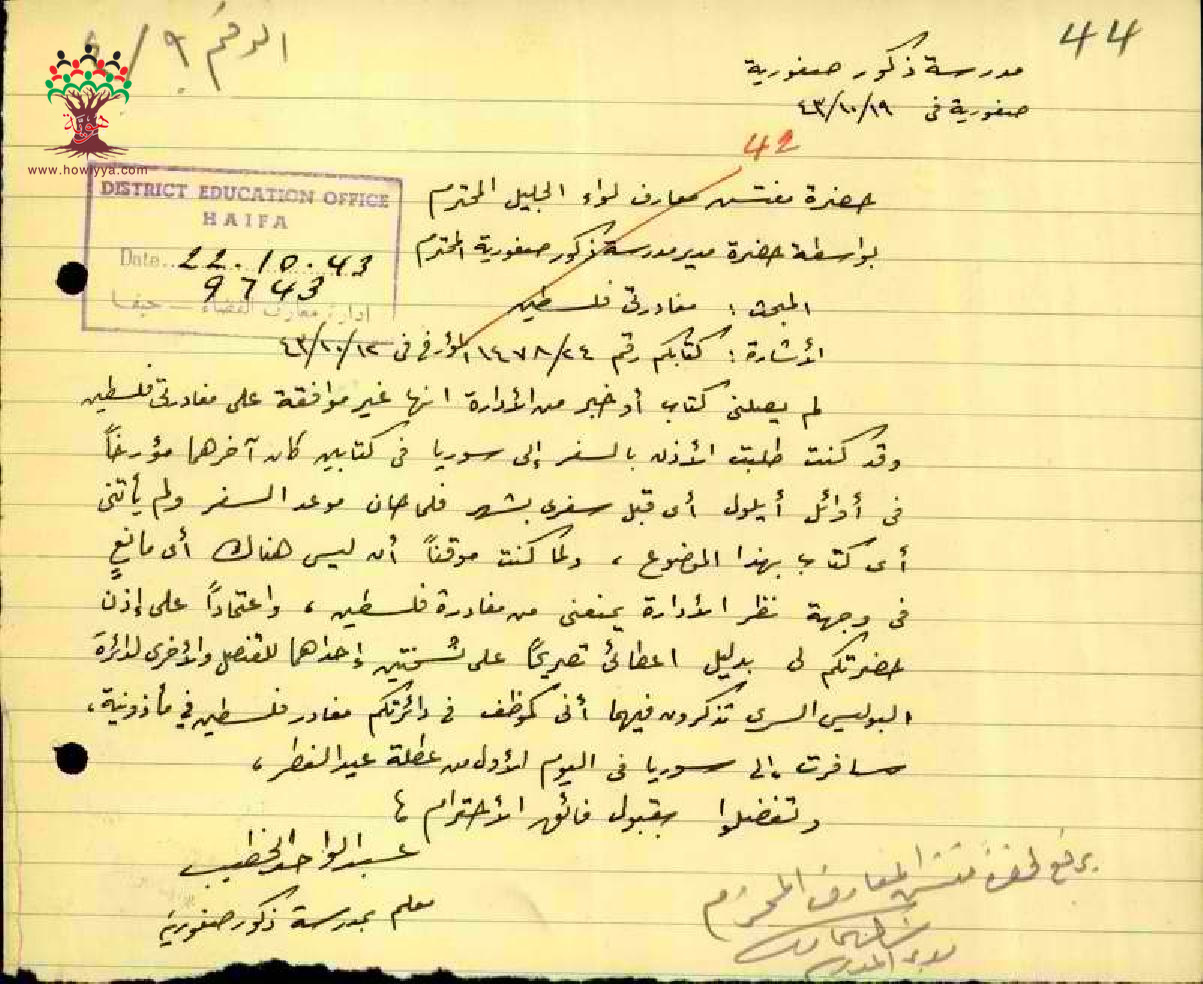 44
الرقم ٩/
هوية
www.howiyya.com
مدرسة ذكور صفورية
صفورية في ٤٣/١٠/١٩
42
DISTRICT EDUCATION OFFICE
HAIFA
Date..22.10.43
9743
ادارة معارف القضاء — حيفا
حضرة مفتش معارف لواء الجليل المحترم
بواسطة حضرة مدير مدرسة ذكور صفورية المحترم
المبحث : مغادرتي فلسطين
الأشارة : كتابكم رقم ١١٤٧٨/٢٤ المؤرخ في ٤٣/١٠/١٢
لم يصلني كتاب أو خبر من الأدارة انها غير موافقة على مغادرتي فلسطين
وقد كنت طلبت الأذن بالسفر إلى سوريا في كتابين كان آخرهما مؤرخاً
في أوائل أيلول أى قبل سفرى بشهر فلما حان موعد السفر ولم يأتني
أى كتاب بهذا الموضوع ، ولما كنت موقناً أن ليس هناك أى مانعٍ
في وجهة نظر الأدارة يمنعني من مغادرة فلسطين ، واعتماداً على إذن
حضرتكم لي بدليل اعطائي تصريحاً على نُسختين إحداهما للقنصل والأخرى لدائرة
البوليس السرى تذكرون فيهما أني كموظف في دائرتكم مغادر فلسطين في مأذونية ،
سافرت إلى سوريا في اليوم الأول من عطلة عيد الفطر ،
وتفضلوا بقبول فائق الأحترام ؛
عبد الواحد الخطيب
معلم بمدرسة ذكور صفورية
يرفع لحضرة مفتش المعارف المحترم
مدير المدرسة